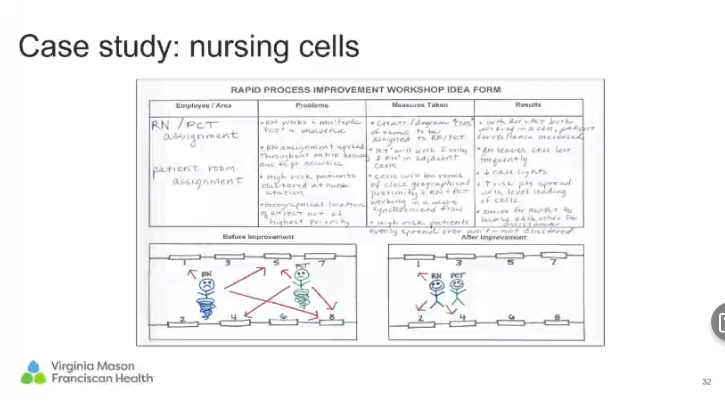 Case study: nursing cells
RAPID PROCESS IMPROVEMENT WORKSHOP IDEA FORM
Employee / Area
Problems
Measures Taken
Results
RN / PCT
assignment
patient room
assignment
• RN works multiple
PCT's
• RN assignment spread
throughout entire
due to pt acuities
• High risk patients
clustered at nurse
station
• Geographical location
of RN/PCT not of
highest priority
• Create / diagram "cells"
of rooms to be
assigned to RN/PCT
• PCT will work only
2 RN's in adjacent
cells
• Cells will be rooms
of close geographical
proximity RN + PCT
working in a more
synchronized flow
• High risk patients
evenly spread over unit - not clustered
• With RN + PCT both
working in a cell, patient
surveillance increased
• RN leaves cell less
frequently
• ↓ call lights
• ↑ risk pts spread
with level loading
of cells
• Easier for RN/PCT to
each other for
assistance
Before Improvement
1 3 5 7
RN
PCT
2 4 6 8
After Improvement
1 3 5 7
RN PCT
2 4 6 8
Virginia Mason
Franciscan Health
32